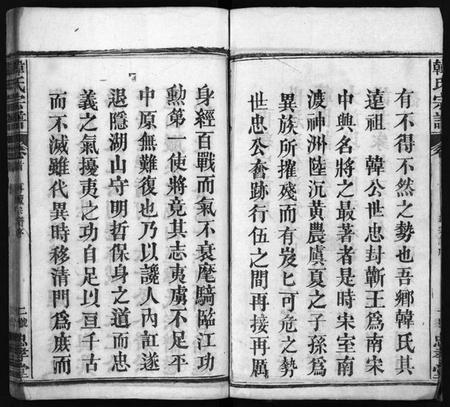 有不得不然之勢也吾鄉韓氏其
遠祖 韓公世忠封蘄王爲南宋
中興名將之最著者是時宋室南
渡神洲陸沉黃農虞夏之子孫爲
異族所摧殘而有岌乜可危之勢
世忠公奮跡行伍之間再接再厲
身經百戰而氣不衰麾騎臨江功
勲第一使將竟其志夷虜不足平
中原無難復也乃以讒人內訌遂
退隱湖山守明哲保身之道而忠
義之氣攘夷之功自足以亘千古
而不滅雖代異時移清門爲庶而
韓氏宗譜
韓氏宗譜